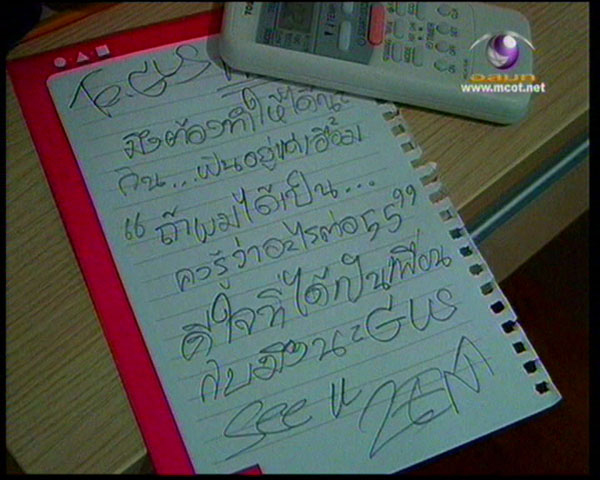 To: GUS
มึงต้องทำให้ได้นะ
กัน... ฝันอยู่แค่เอื้อม
“ ถ้าผมได้เป็น...
ควรรู้ว่าอะไรต่อ 55 ”
ดีใจที่ได้เป็นเพื่อน
กับมึงนะ GUS
See U ZEM
อสมท
www.mcot.net